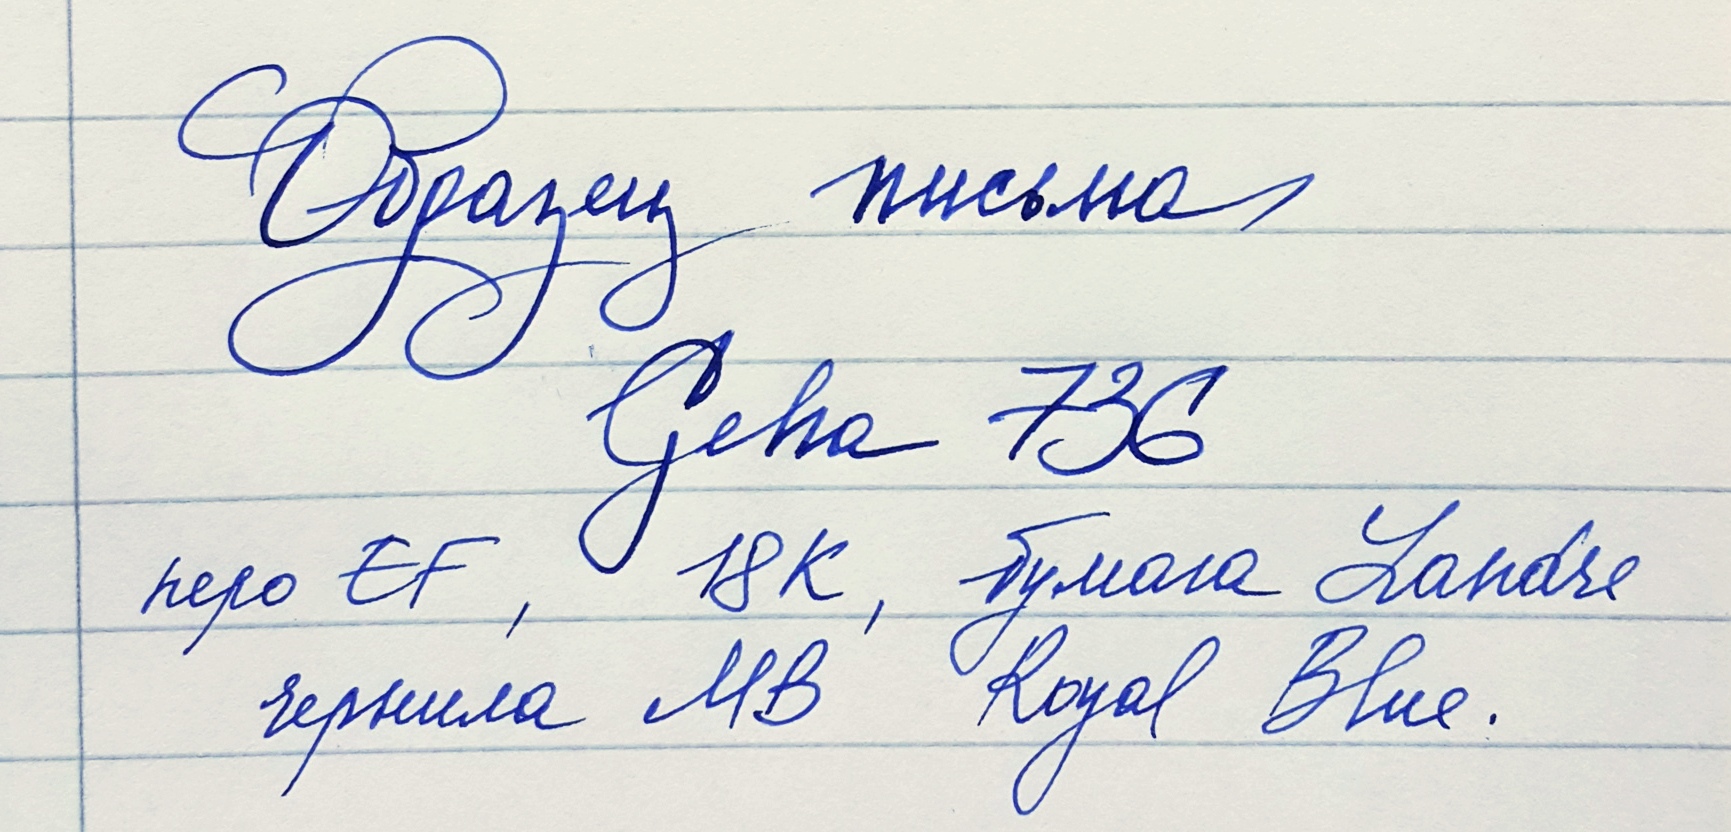 Образец письма
Geha 736
перо EF, 18K, бумага Landre
чернила MB Royal Blue.